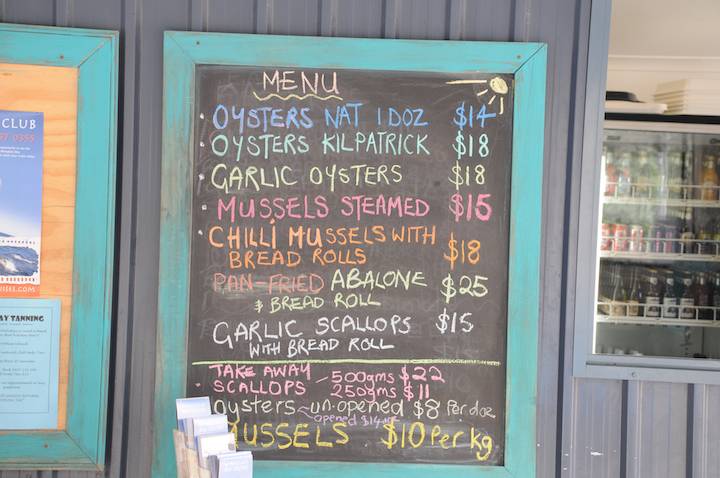 CLUB
57 0355
ISES.COM
AY TANNING
MENU
OYSTERS NAT 1 DOZ $14
OYSTERS KILPATRICK $18
GARLIC OYSTERS $18
MUSSELS STEAMED $15
CHILLI MUSSELS WITH
BREAD ROLLS $18
PAN-FRIED ABALONE $25
& BREAD ROLL
GARLIC SCALLOPS $15
WITH BREAD ROLL
TAKE AWAY - 500gms $22
SCALLOPS 250gms $11
Oysters - un.opened $8 Per doz
opened $14
MUSSELS $10 Per kg